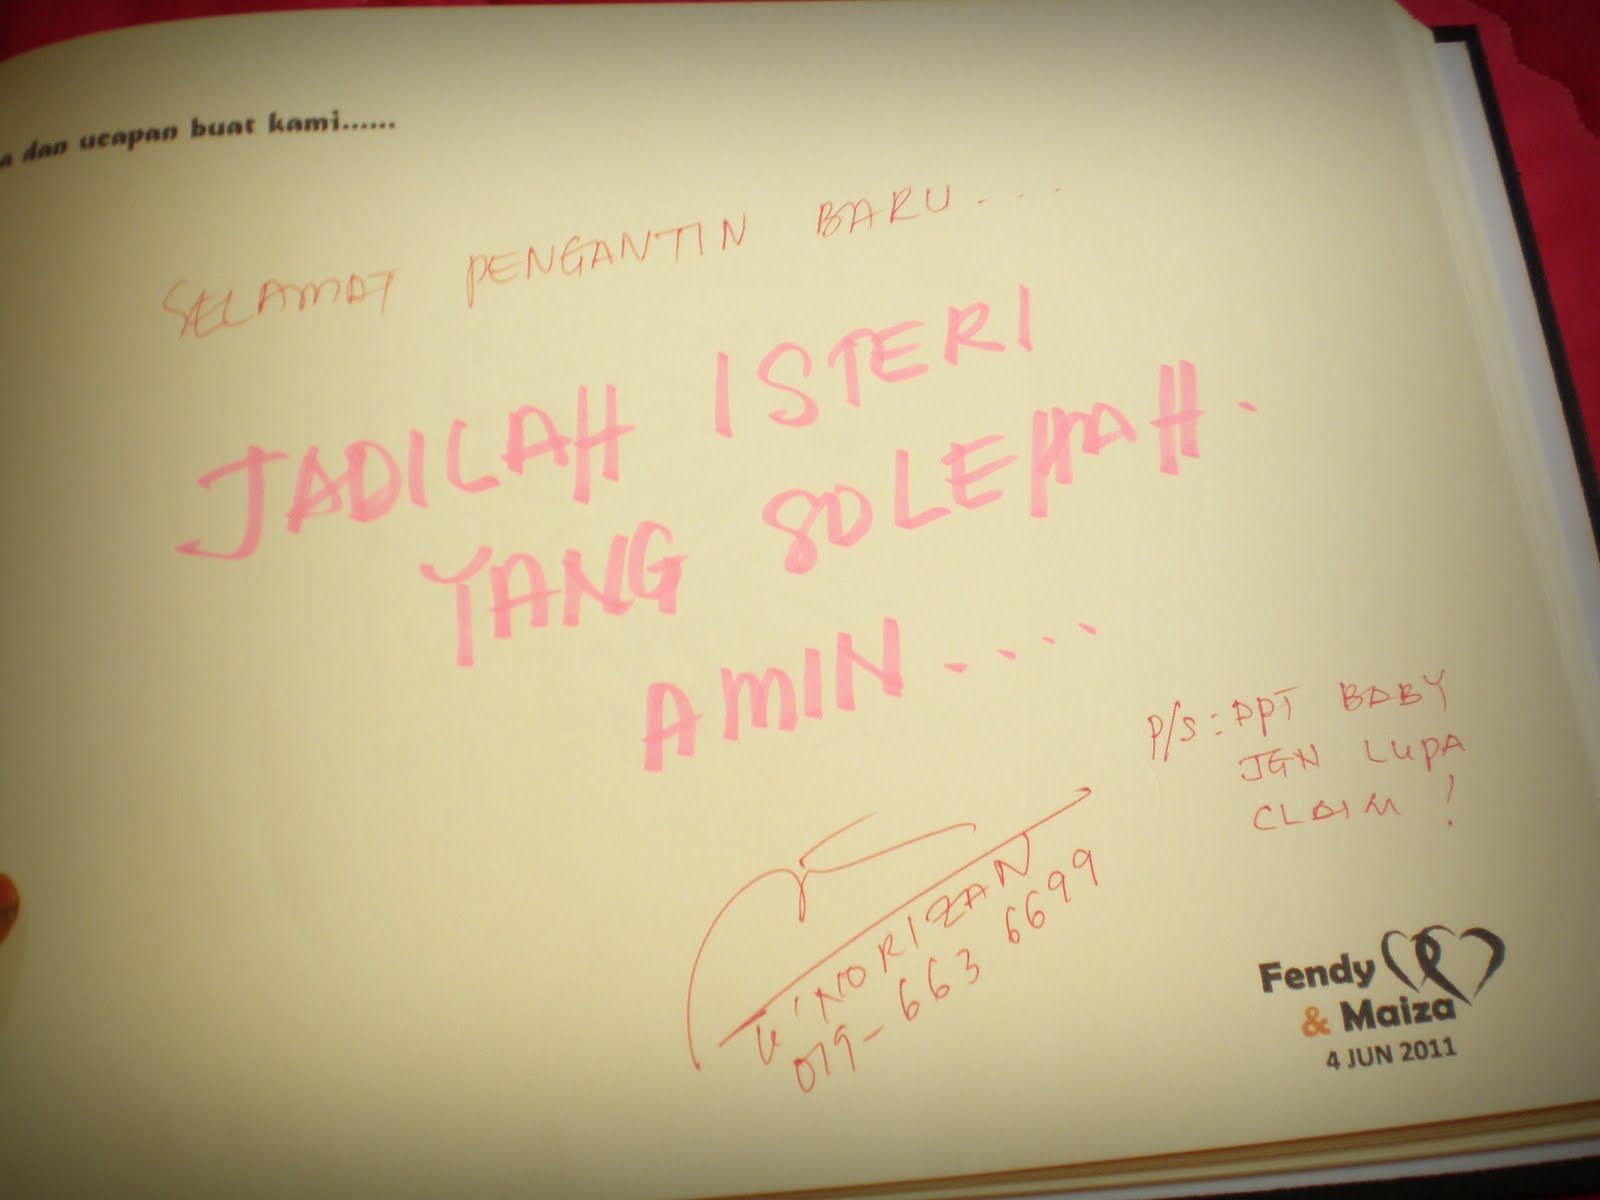 a dan ucapan buat kami......
SELAMAT PENGANTIN BARU....
JADILAH ISTERI
YANG SOLEHAH.
AMIN....
P/S : DPT BABY
JGN LUPA
CLAIM !
K'NORIZAN
019-663 6699
Fendy
& Maiza
4 JUN 2011